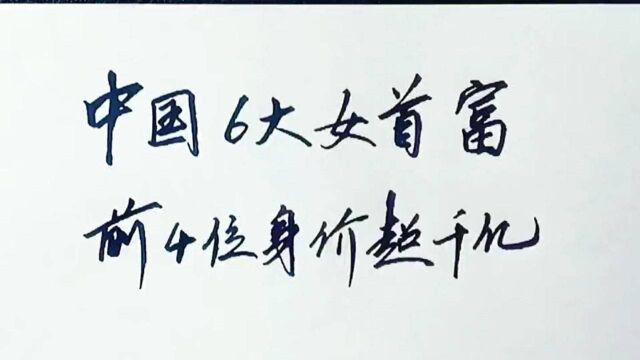 中国6大女首富
前4位身价超千亿